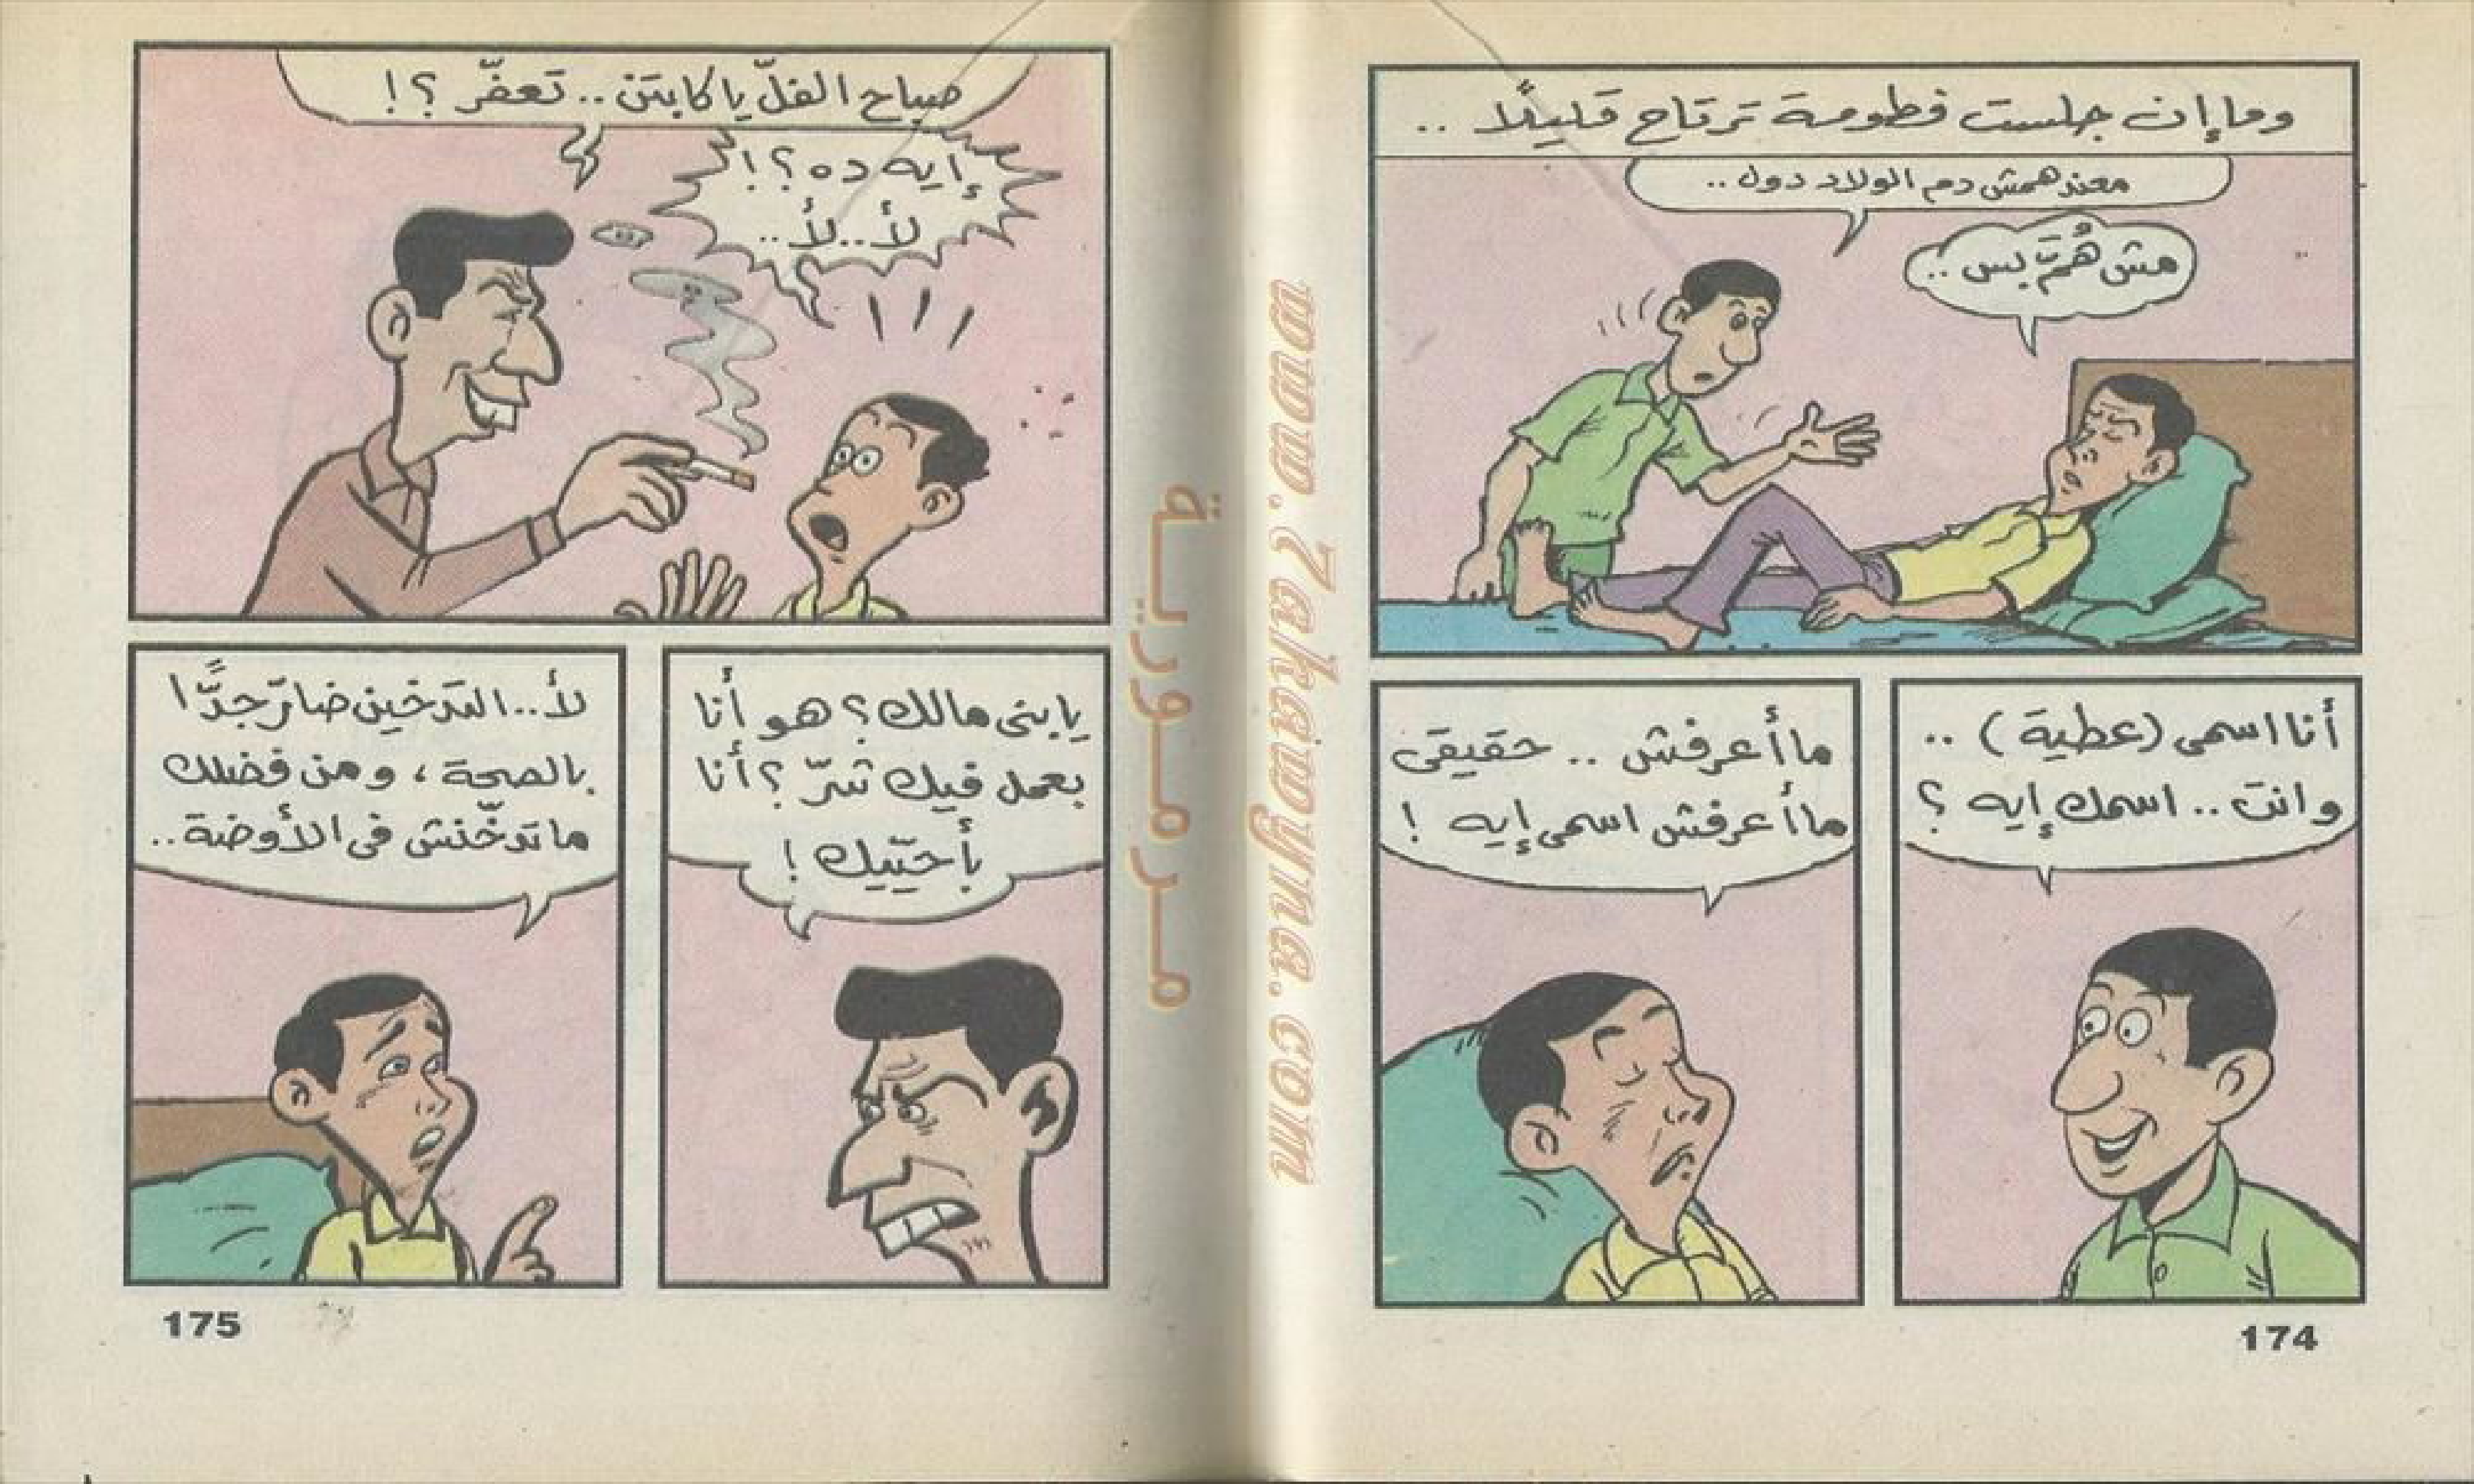 وما إن جلست فطومة ترتاح قليلًا ..
معندهمش دم الولاد دول ..
مش هُمَّ بس ..
أنا اسمى (عطية) ..
وانت .. اسمك إيه ؟
ما أعرفش .. حقيقى
ما أعرفش اسمى إيه !
174
صباح الفلّ يا كابتن .. تعفّر ؟!
إيه ده ؟!
لأ .. لأ ..
يا بنى مالك ؟ هو أنا
بعمل فيك شرّ ؟ أنا
بأحيّيك !
لأ .. التدخين ضارّ جدًّا
بالصحة ، ومن فضلك
ما تدخّنش فى الأوضة ..
175
مرمورية
www.7akawyna.com